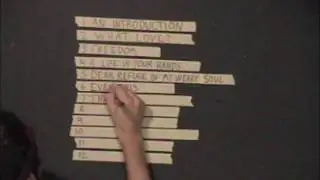 1 AN INTRODUCTION
2 WHAT LOVE?
3 FREEDOM
4 A LIFE IN YOUR HANDS
5 DEAR REFUGE OF MY WEARY SOUL
6
7
8
9
10
11
12